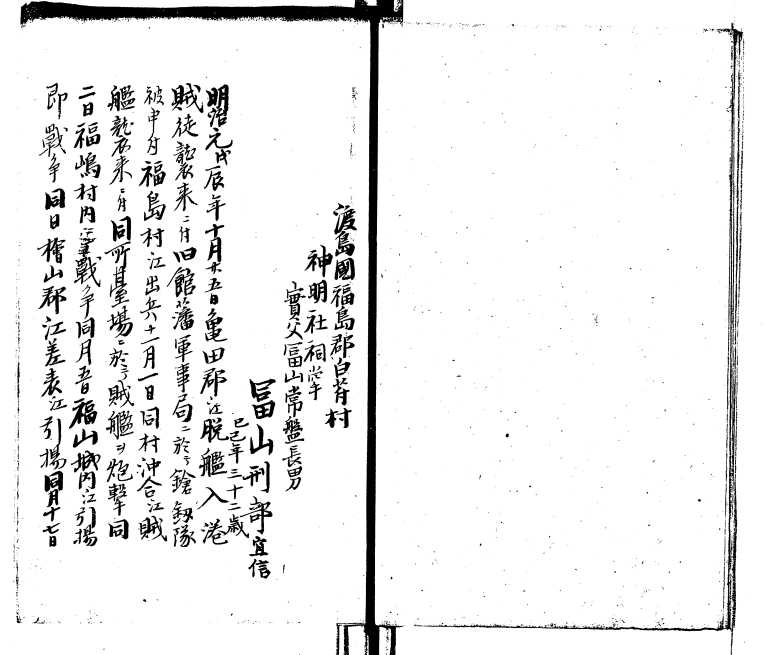 渡島國福島郡白符村
神明社祠掌
實父冨山常盤長男
冨山刑部宜信
已巳年三十二歳
明治元戊辰年十月廿五日亀田郡江脱艦入港
賊徒襲来ニ付旧館藩軍事局ニ於テ鎗釼隊
被申付福島村江出兵十一月一日同村沖合江賊
艦襲来ニ付同所臺場ニ於テ賊艦ヲ炮撃同
二日福嶋村内ニ戰争同月五日福山城内江引揚
即戰争同日檜山郡江差表江引揚同月十七日